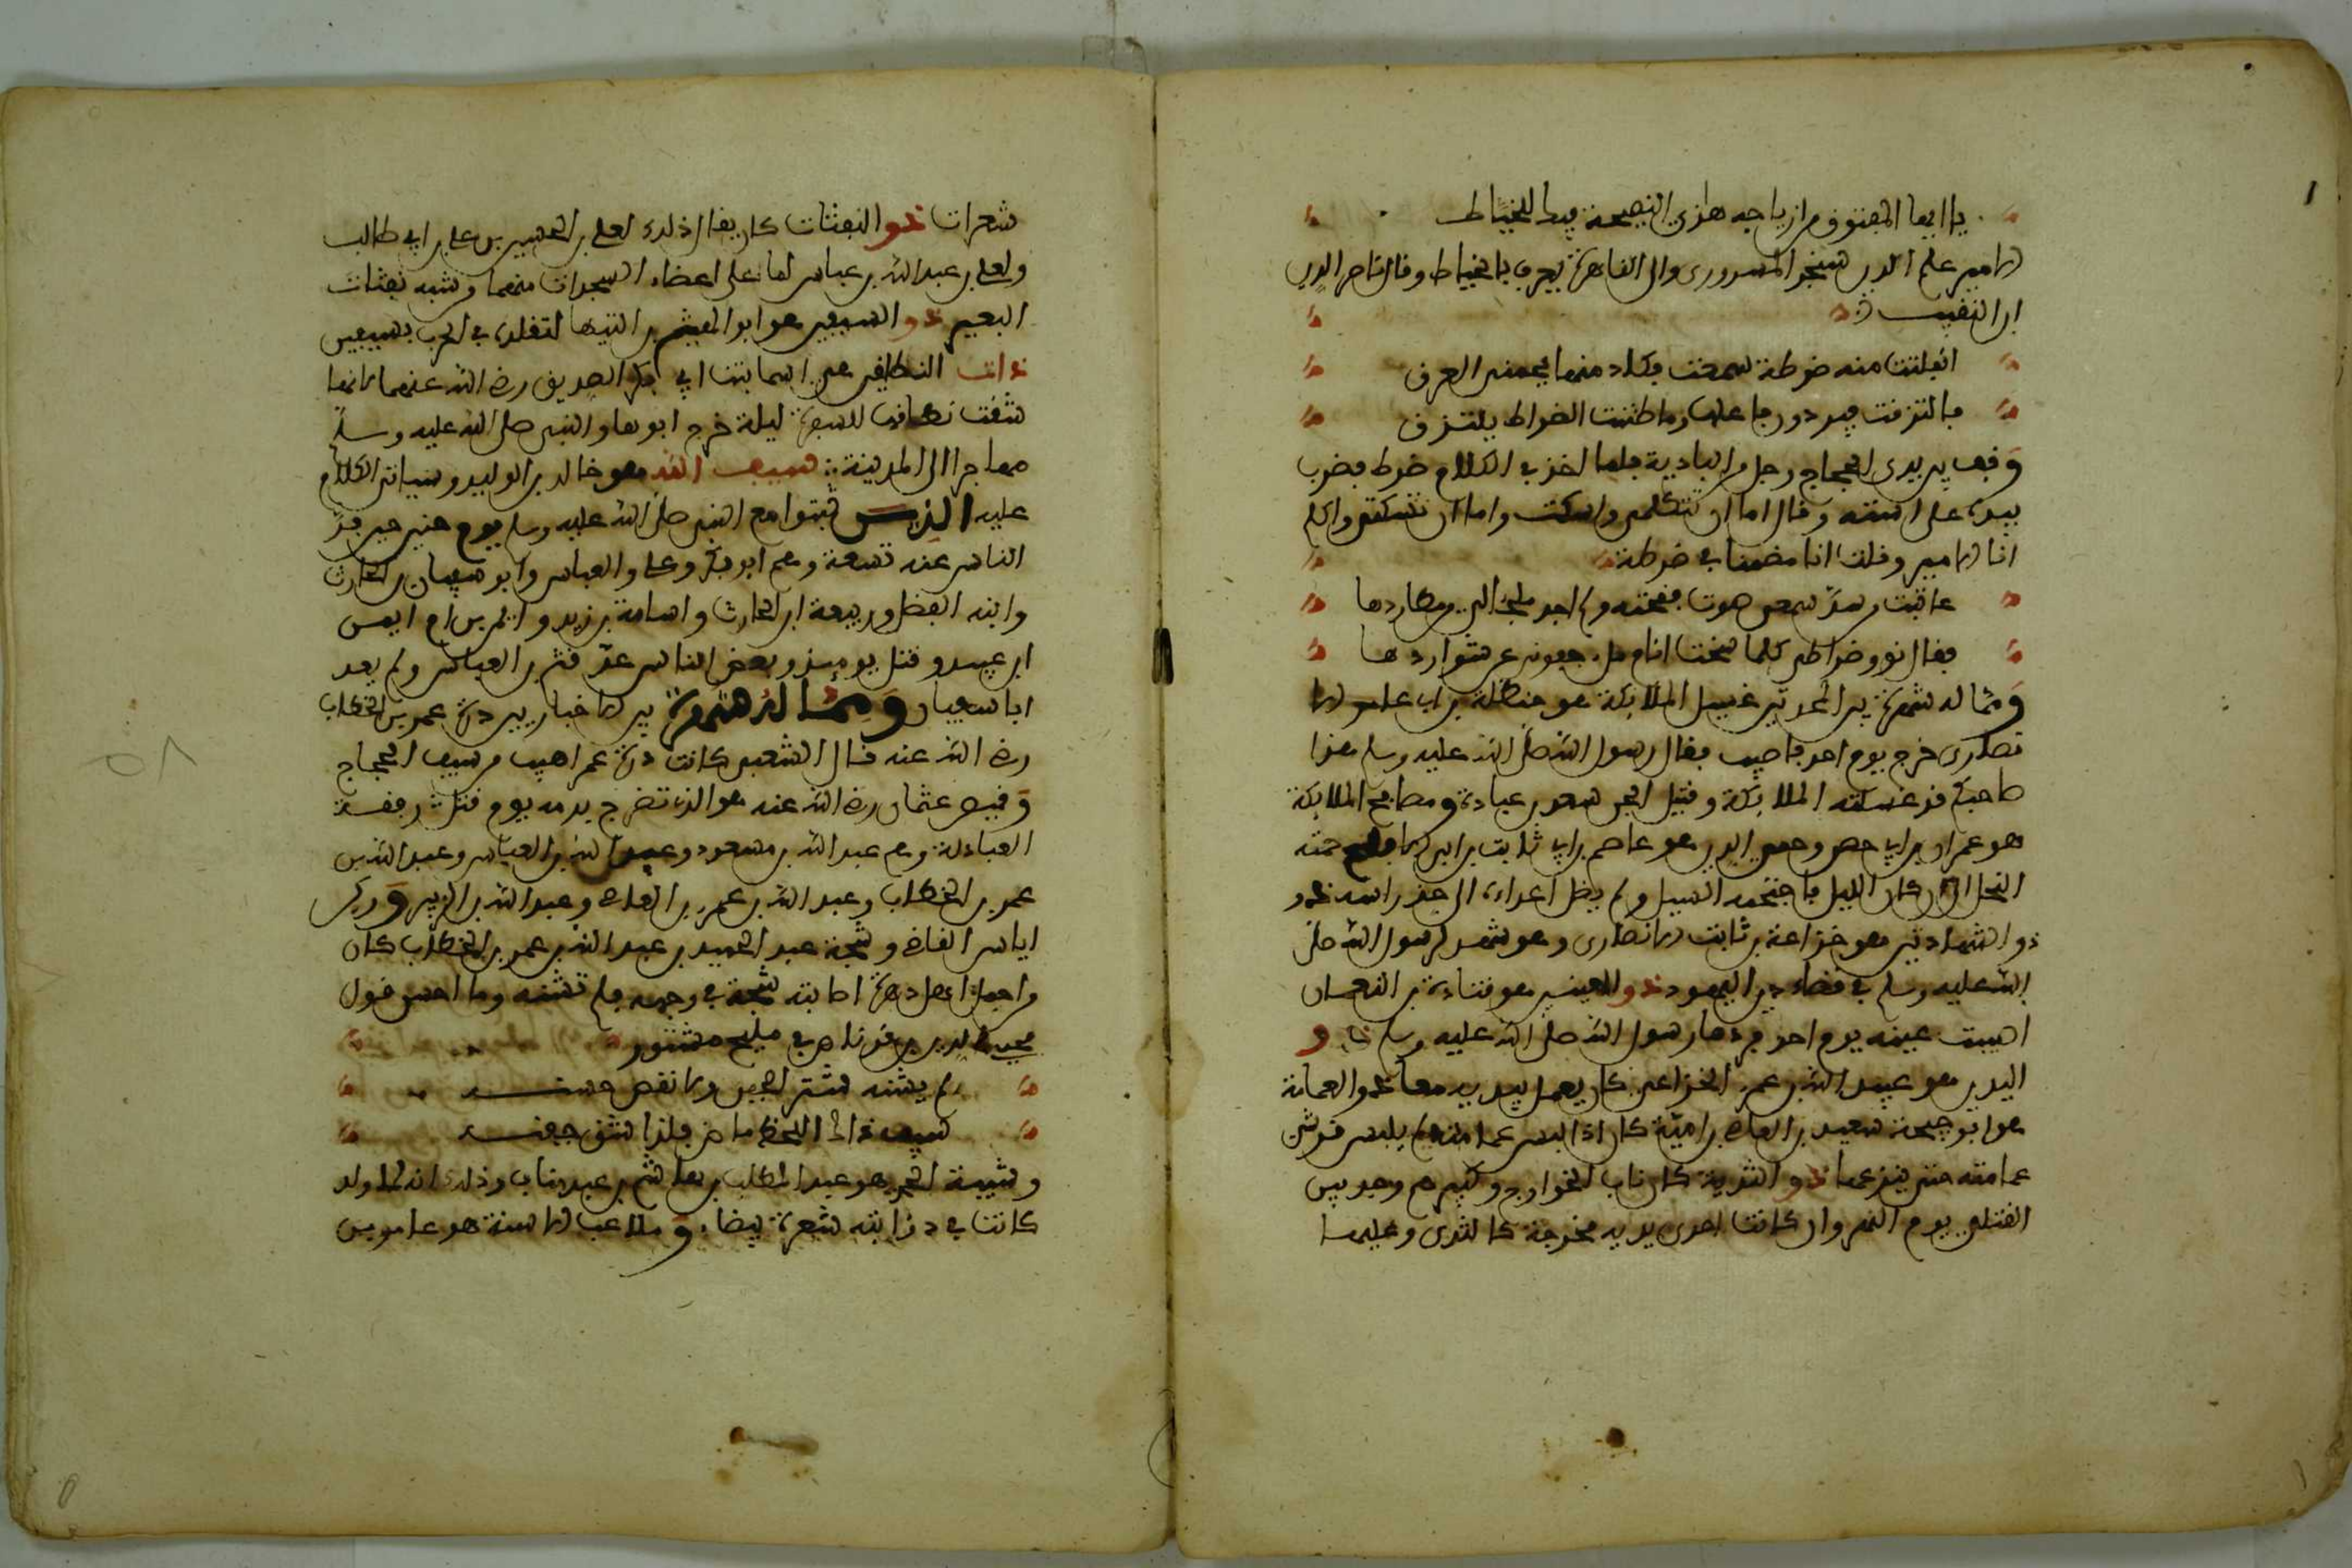 يا ايها المفتون من ازياجه هاذي النصيحة فيط للخياط
الامير علم الدين سنجر المسروري والي القاهرة يعرف بالخياط وقال ناصر الدين
ابن النقيب
انفلتت منه ضرطة سمعت وكاد منها يحمر العرق
فالتزقت فيه دور ما علمه وما ظننت الضراط يلتزق
وقف بين يدي الحجاج رجل من البادية فلما اخذ في الكلام ضرط فضرب
بيده على استه وقال اما ان تتكلمي واسكت واما ان تسكتي واتكلم
انا الامير وقلت انا مضمنا في ضرطة
عاقبت سمعي صوت ففحته ولم اجد
فقال نوو ضراطي كلما سخت انام مل جفوني عن شواردها
ومما له شهرة بين المحدثين غسيل الملائكة هو حنظلة بن ابي عامر الا
نصاري خرج يوم احد فاصيب فقال رسول الله صلى الله عليه وسلم هذا
صاحبكم قد غسلته الملائكة وقتيل الجن سعد بن عبادة ومصافح الملائكة
هو عمران بن ابي حصين وحمي الدبر هو عاصم بن ابي ثابت بن ابي الاقلح حمته
النحل الى ان كان الليل فاجتحفه السيل ولم يصل اعداءه الى جذ راسه ذو
ذو الشهادتين هو خزاعة بن ثابت الانصاري وهو شهد لرسول الله صلى
الله عليه وسلم في قضاء دين اليهود ذو العينين هو قتادة بن النعمان
اصيبت عينه يوم احد فردها رسول الله صلى الله عليه وسلم ذو
اليدين هو عبيد الله بن عمرو الخزاعي كان يعمل بيديه معا ذو العمامة
هو ابو جيحة سعيد بن العاص بن امية كان اذا لبس عمامته لم يلبس قرشي
عمامته حتى ينزعها ذو الثدية كان ناب الخوارج وكبيرهم وجد بين
القتلى يوم النهروان كانت احدى يديه مخرجة كالثدي وعليها
شعرات ذو الثفثات كان يقال ذلك لعلي بن الحسين بن علي بن ابي طالب
ولعلي بن عبد الله بن عباس لما على اعضاء السجدات منهما من شبه ثفثات
البعير ذو السيفين هو ابو الهيثم بن التيها لتقلده في الحرب بسيفين
ذات النطاقين هي اسما بنت ابي بكر الصديق رضي الله عنهما لانها
شقت نطاقها للسفرة ليلة خرج ابوها والنبي صلى الله عليه وسلم
مهاجرا الى المدينة سيف الله هو خالد بن الوليد وسياتي الكلام
عليه الذين ثبتوا مع النبي صلى الله عليه وسلم يوم حنين حين فر
الناس عنه تسعة وهم ابو بكر وعلي والعباس وابو سفيان بن الحارث
وابنه الفضل وربيعة ابن الحارث واسامة بن زيد وايمن بن ام ايمن
ابن عبيد وقتل يومئذ وبعض الناس عد قثم بن العباس ولم يعد
ابا سفيان ومما اشتهرة بين الاخبار بين درة عمر بن الخطاب
رضي الله عنه قال الشعبي كانت درة عمر اهيب من سيف الحجاج
وقميص عثمان رضي الله عنه هو الذي تضرج بدمه يوم قتل
العبادلة وهم عبد الله بن مسعود وعبد الله بن العباس وعبد الله بن
عمر بن الخطاب وعبد الله بن عمرو بن العاص وعبد الله بن الزبير وذكر
اياس القاضي وشجة عبد الحميد بن عبد الله بن عمر بن الخطاب كان
من اجمل اهل دهره اصابته شجة في وجهه فلم تشنه وما احسن قول
محيي الدين بن قرناص في مليح مشتور
لم يشنه شتر الجفن ولا نقص حسنه
سيف ذاك اللحظ ماض فلذا شق جفنه
وشيبة الحمد هو عبد المطلب بن هاشم بن عبد مناف وذلك انه لما ولد
كانت في ذؤابته شعرة بيضاء وملاعب الاسنة هو عامر بن